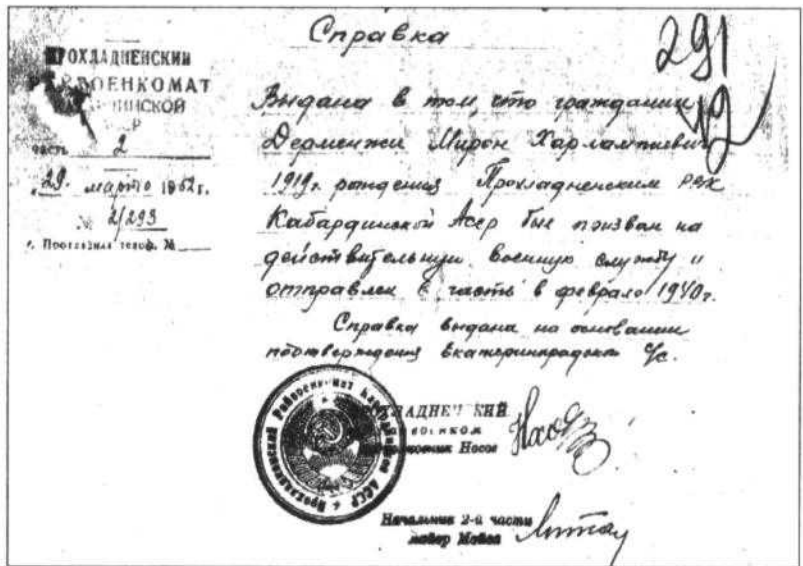 Справка
291
49
ПРОХЛАДНЕНСКИЙ
РАЙВОЕНКОМАТ
часть 2
„29. марта 1962г.
№ 2/293
Выдана в том, что гражданин
Дерменжи Мирон Харлампиевич
1919г. рождения Прохладненским РВК
Кабардинской Асср был призван на
действительную военную службу и
отправлен в часть в феврале 1940г.
Справка выдана на основании
подтверждения Екатериноградского с/с.
ПРОХЛАДНЕНСКИЙ
райвоенком
Носов
Начальник 2-й части
майор